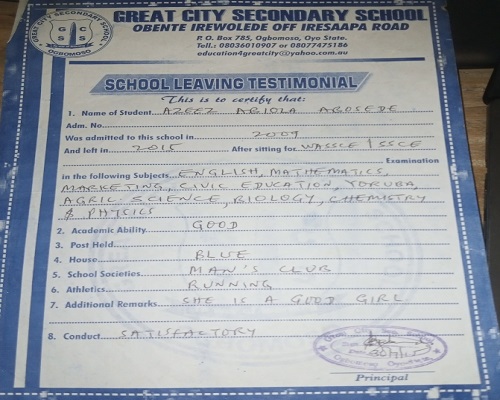 GREAT CITY SECONDARY SCHOOL
OBENTE IREWOLEDE OFF IRESAAPA ROAD
P. O. Box 785, Ogbomoso, Oyo State.
Tell.: 08036010907 or 08077475186
education4greatcity@yahoo.com.au
GREAT CITY SECONDARY SCHOOL
G C
S S
OGBOMOSO
SCHOOL LEAVING TESTIMONIAL
This is to certify that:
1. Name of Student AZEEZ ABIOLA ABOSEDE
Adm. No.
Was admitted to this school in 2009
And left in 2015 After sitting for WASSCE / SSCE
Examination
in the following Subjects ENGLISH, MATHEMATICS,
MARKETING, CIVIC EDUCATION, YORUBA,
AGRIC. SCIENCE, BIOLOGY, CHEMISTRY
& PHYSICS
2. Academic Ability GOOD
3. Post Held
4. House BLUE
5. School Societies MAN'S CLUB
6. Athletics RUNNING
7. Additional Remarks SHE IS A GOOD GIRL
8. Conduct SATISFACTORY
Principal